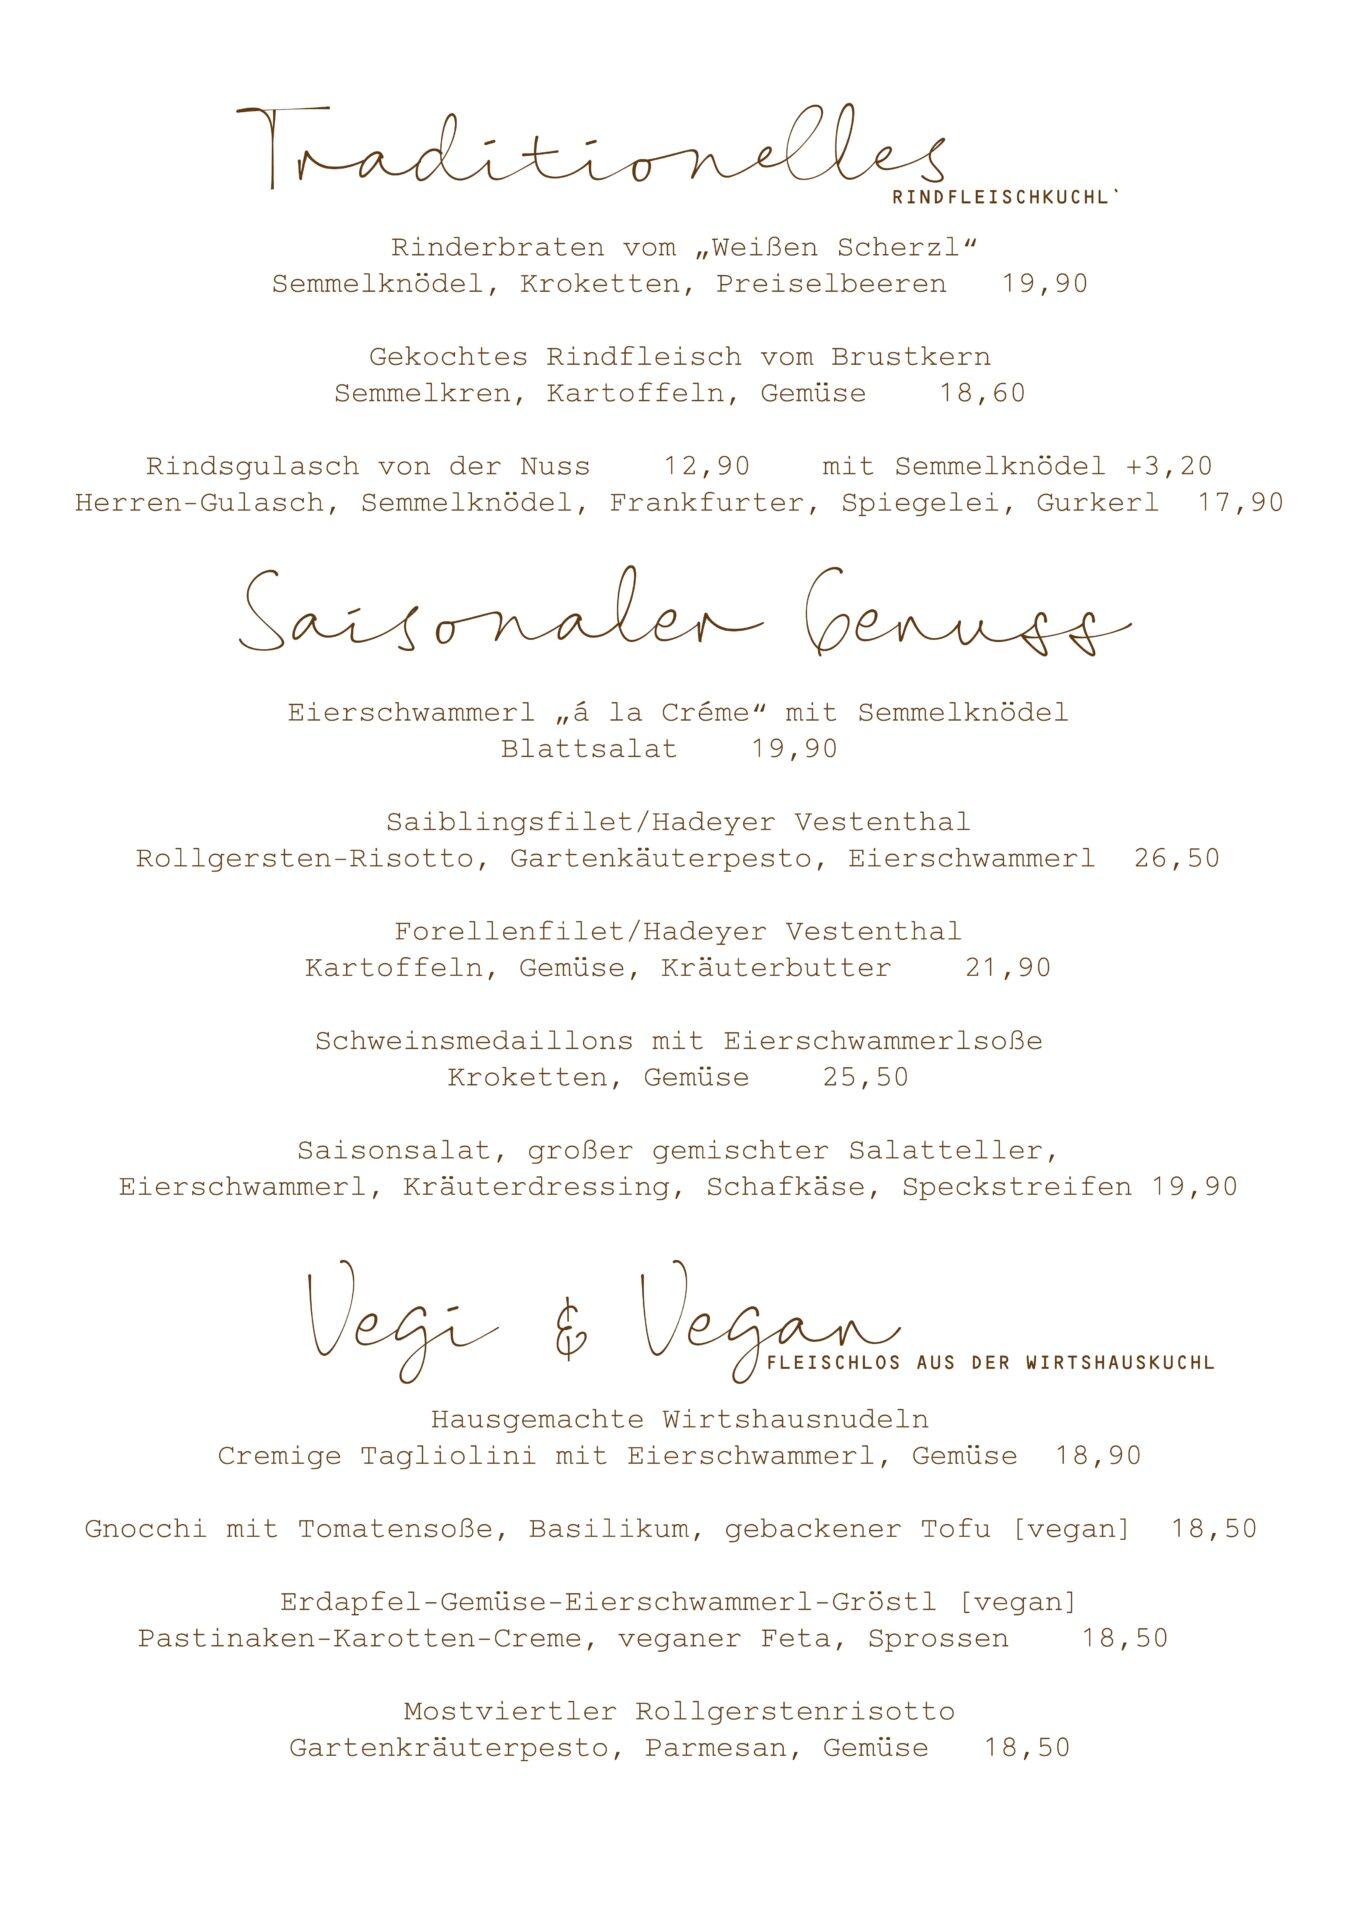 Traditionelles
RINDFLEISCHKUCHL`
Rinderbraten vom „Weißen Scherzl“
Semmelknödel, Kroketten, Preiselbeeren 19,90
Gekochtes Rindfleisch vom Brustkern
Semmelkren, Kartoffeln, Gemüse 18,60
Rindsgulasch von der Nuss 12,90 mit Semmelknödel +3,20
Herren-Gulasch, Semmelknödel, Frankfurter, Spiegelei, Gurkerl 17,90
Saisonaler Genuss
Eierschwammerl „á la Créme“ mit Semmelknödel
Blattsalat 19,90
Saiblingsfilet/Hadeyer Vestenthal
Rollgersten-Risotto, Gartenkäuterpesto, Eierschwammerl 26,50
Forellenfilet/Hadeyer Vestenthal
Kartoffeln, Gemüse, Kräuterbutter 21,90
Schweinsmedaillons mit Eierschwammerlsoße
Kroketten, Gemüse 25,50
Saisonsalat, großer gemischter Salatteller,
Eierschwammerl, Kräuterdressing, Schafkäse, Speckstreifen 19,90
Vegi & Vegan
FLEISCHLOS AUS DER WIRTSHAUSKUCHL
Hausgemachte Wirtshausnudeln
Cremige Tagliolini mit Eierschwammerl, Gemüse 18,90
Gnocchi mit Tomatensoße, Basilikum, gebackener Tofu [vegan] 18,50
Erdapfel-Gemüse-Eierschwammerl-Gröstl [vegan]
Pastinaken-Karotten-Creme, veganer Feta, Sprossen 18,50
Mostviertler Rollgerstenrisotto
Gartenkräuterpesto, Parmesan, Gemüse 18,50